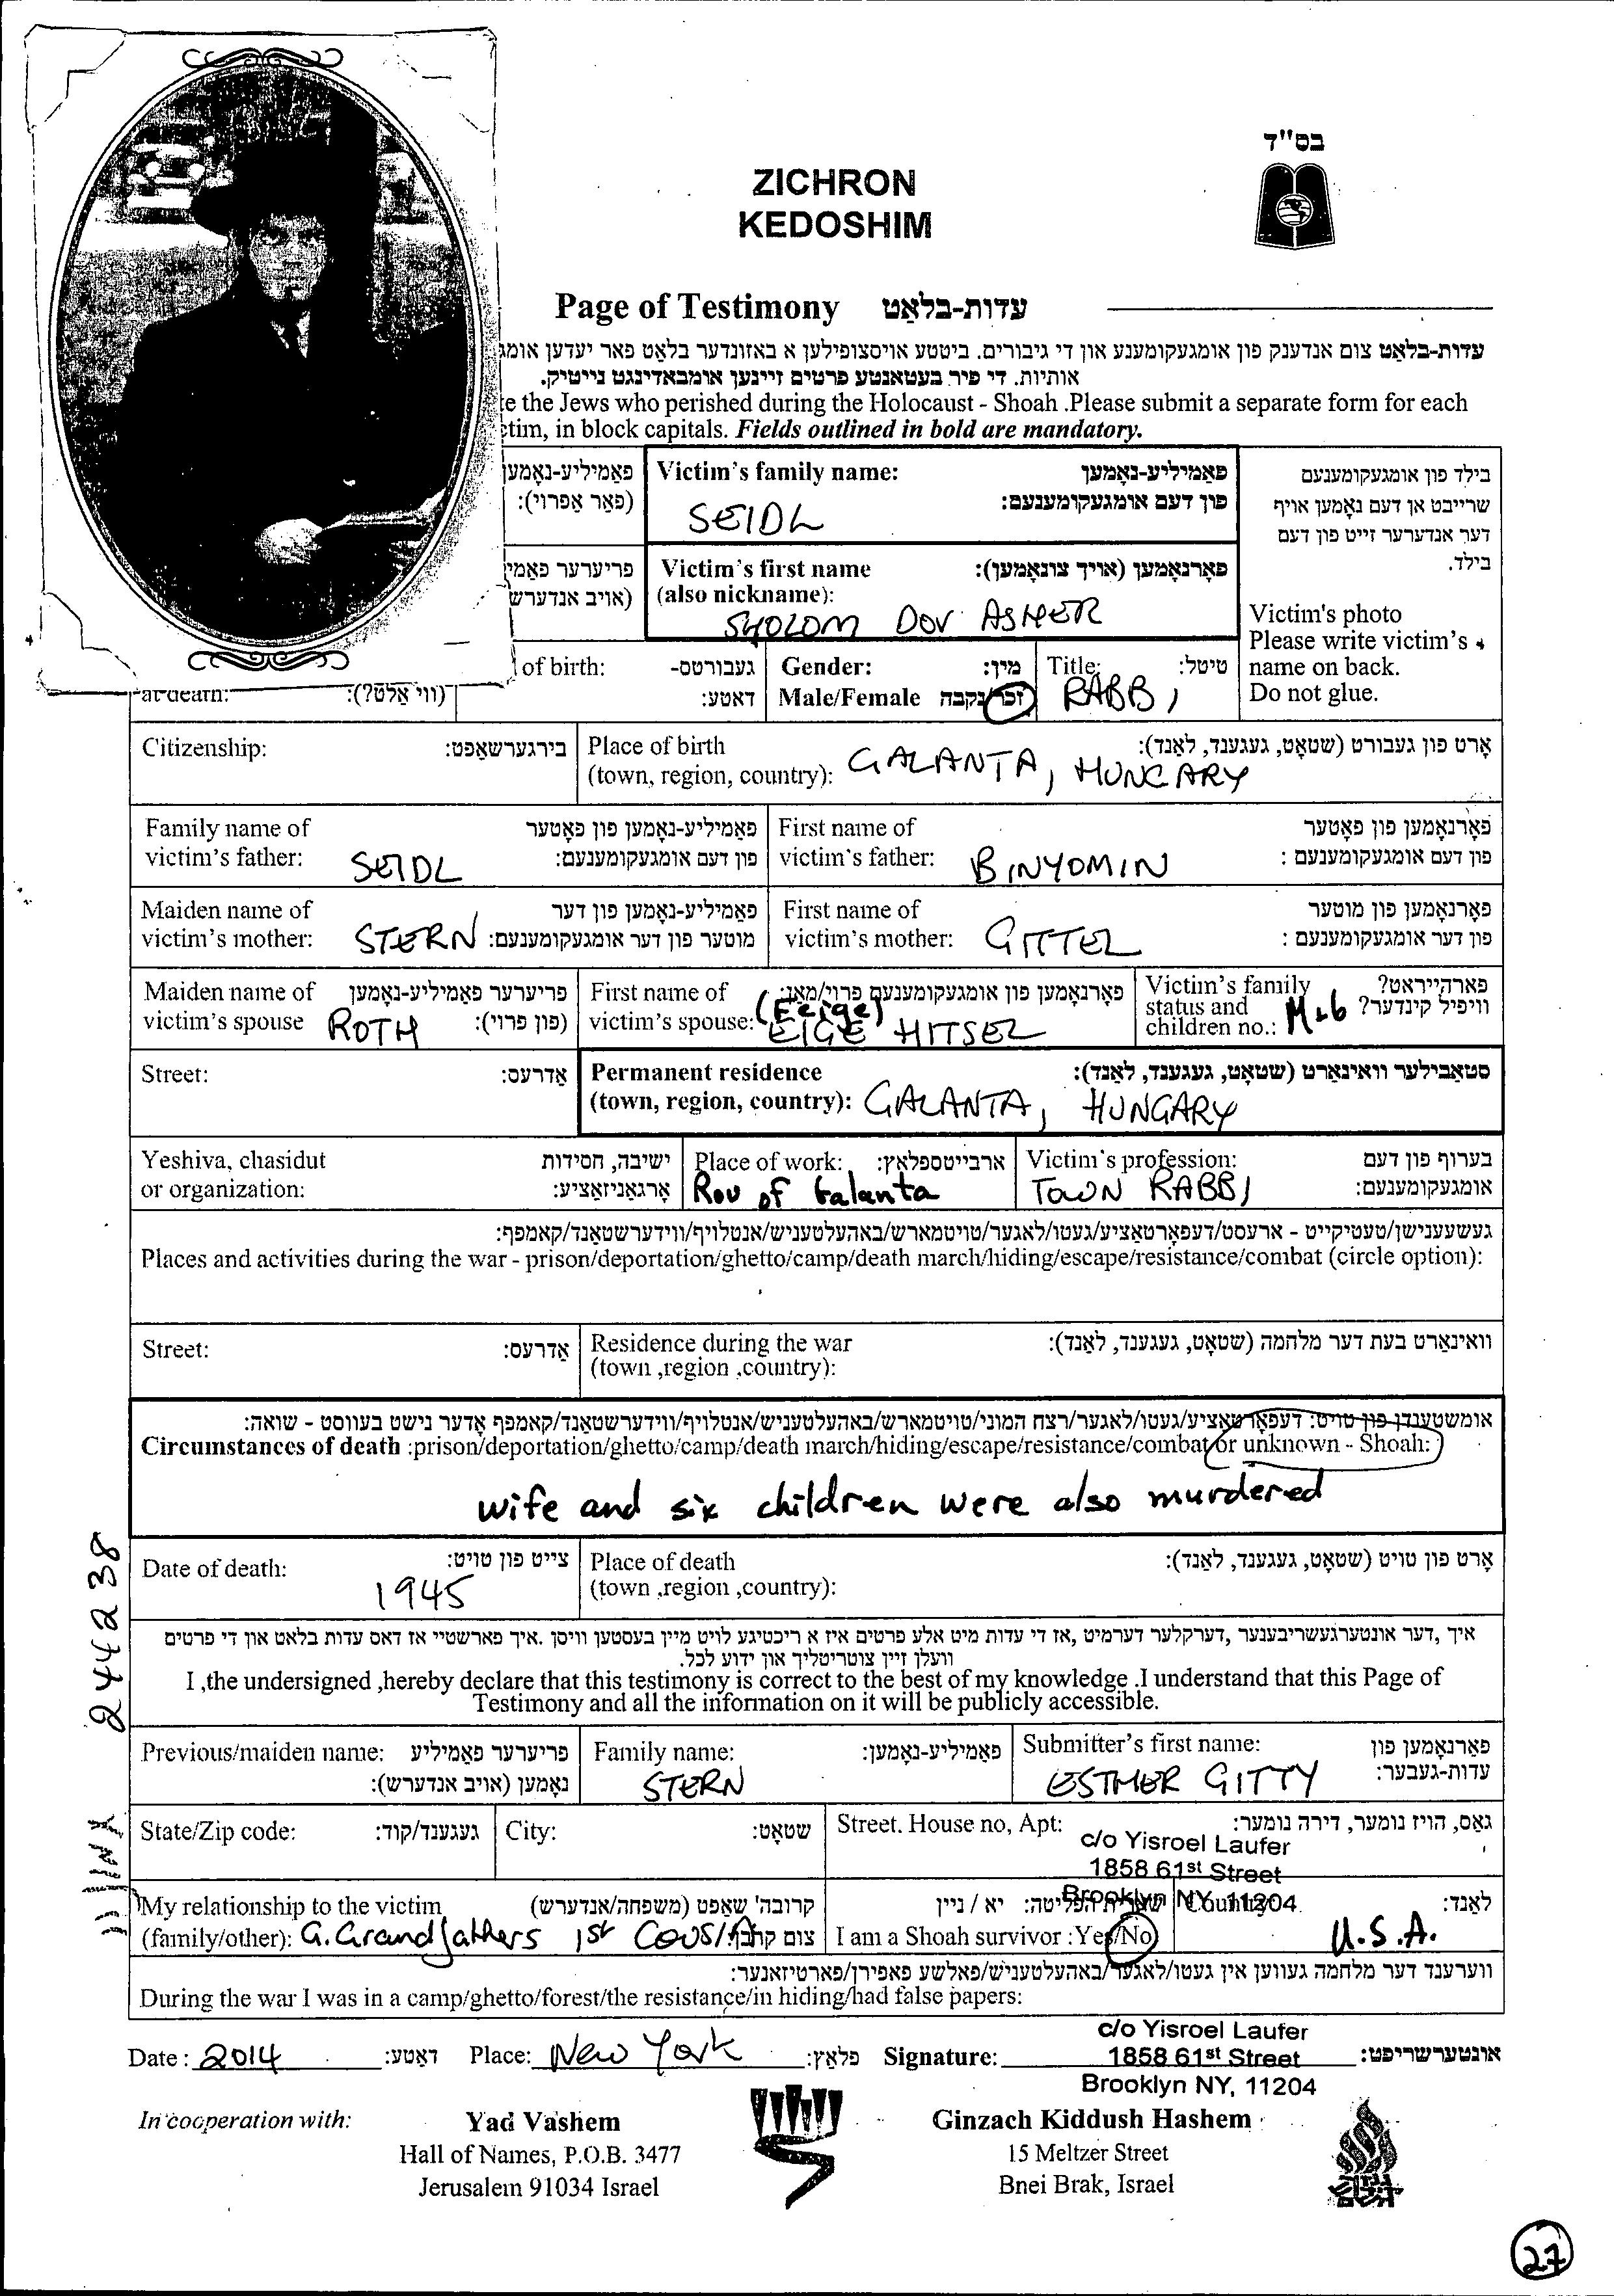 בס"ד
ZICHRON
KEDOSHIM
Page of Testimony עדות-בלאַט
עדות-בלאַט צום אנדענק פון אומגעקומענע און די גיבורים. ביטטע אויסצופילען א באזונדער בלאַט פאר יעדען אומג
אותיות. די פיר בעטאָנטע פרטים זיינען אומבאדינגט נייטיק.
e the Jews who perished during the Holocaust - Shoah .Please submit a separate form for each
tim, in block capitals. Fields outlined in bold are mandatory.
פאַמיליע-נאָמען
(פאַר אַפרוי):
Victim's family name: פאַמיליע-נאָמען
פון דעם אומגעקומענעם:
SEIDL
בילד פון אומגעקומענעם
שרייבט אן דעם נאָמען אויף
דער אנדערער זייט פון דעם
בילד.
פריערער פאַמי
(אויב אנדערש
Victim's first name פאָרנאָמען (אויך צונאָמען):
(also nickname):
SHOLOM DOV ASHER
Victim's photo
Please write victim's
name on back.
Do not glue.
at death: (ווי אַלט?):
of birth: געבורטס-
דאַטע:
Gender: מין:
Male/Female זכר/נקבה
Title: טיטל:
RABBI
Citizenship: בירגערשאַפט:
Place of birth אָרט פון געבורט (שטאָט, געגענד, לאַנד):
(town, region, country): GALANTA, HUNGARY
Family name of פאַמיליע-נאָמען פון פאָטער
victim's father: SEIDL פון דעם אומגעקומענעם:
First name of פאָרנאָמען פון פאָטער
victim's father: BINYOMIN פון דעם אומגעקומענעם :
Maiden name of פאַמיליע-נאָמען פון דער
victim's mother: STERN מוטער פון דער אומגעקומענעם:
First name of פאָרנאָמען פון מוטער
victim's mother: GITTEL פון דער אומגעקומענעם :
Maiden name of פריערער פאַמיליע-נאָמען
victim's spouse ROTH (פון פרוי):
First name of פאָרנאָמען פון אומגעקומענעם פרוי/מאַן:
victim's spouse: (Feige)
EIGE HITSEL
Victim's family פארהייראט?
status and וויפיל קינדער?
children no.: M+6
Street: אַדרעס:
Permanent residence סטאַבילער וואוינאָרט (שטאָט, געגענד, לאַנד):
(town, region, country): GALANTA, HUNGARY
Yeshiva, chasidut ישיבה, חסידות
or organization: אָרגאַניזאַציע:
Place of work: ארבייטספלאץ:
Rov of Galanta
Victim's profession: בערוף פון דעם
TOWN RABBI אומגעקומענעם:
געשעענישן/טעטיקייט - ארעסט/דעפּאָרטאַציע/געטו/לאגער/טויטמארש/באהעלטעניש/אנטלויף/ווידערשטאנד/קאמפף:
Places and activities during the war - prison/deportation/ghetto/camp/death march/hiding/escape/resistance/combat (circle option):
Street: אַדרעס:
Residence during the war וואוינאָרט בעת דער מלחמה (שטאָט, געגענד, לאַנד):
(town ,region ,country):
אומשטענדן פון טויט: דעפּאָרטאַציע/געטו/לאגער/רצח המוני/טויטמארש/באהעלטעניש/אנטלויף/ווידערשטאַנד/קאמפף אָדער נישט בעוואוסט - שואה:
Circumstances of death :prison/deportation/ghetto/camp/death march/hiding/escape/resistance/combat or unknown - Shoah:
wife and six children were also murdered
Date of death: צייט פון טויט:
1945
Place of death אָרט פון טויט (שטאָט, געגענד, לאַנד):
(town ,region ,country):
איך ,דער אונטערגעשריבענער ,דערקלער דערמיט ,אז די עדות מיט אלע פרטים איז א ריכטיגע לויט מיין בעסטען וויסן .איך פארשטיי אז דאס עדות בלאט און די פרטים
וועלן זיין צוטריטליך און ידוע לכל.
I ,the undersigned ,hereby declare that this testimony is correct to the best of my knowledge .I understand that this Page of
Testimony and all the information on it will be publicly accessible.
Previous/maiden name: פריערער פאַמיליע
נאָמען (אויב אנדערש):
Family name: פאַמיליע-נאָמען:
STERN
Submitter's first name: פאָרנאָמען פון
עדות-געבער:
ESTHER GITTY
State/Zip code: געגענד/קוד:
City: שטאָט:
Street. House no, Apt: גאַס, הויז נומער, דירה נומער:
c/o Yisroel Laufer
1858 61st Street
Brooklyn NY, 11204
My relationship to the victim קרובה'שאַפט (משפחה/אנדערש)
(family/other): G. Grandfathers 1st Cousin צום קרבן:
שארית הפליטה: יא / ניין
I am a Shoah survivor :Yes/No
Country: לאַנד:
U.S.A.
ווערענד דער מלחמה געווען אין געטו/לאגער/באהעלטעניש/פאלשע פאפירן/פארטיזאנער:
During the war I was in a camp/ghetto/forest/the resistance/in hiding/had false papers:
Date : 2014 דאַטע: Place: New York פלאַץ: Signature: אונטערשריפט:
c/o Yisroel Laufer
1858 61st Street
Brooklyn NY, 11204
In cooperation with:
Yad Vashem
Hall of Names, P.O.B. 3477
Jerusalem 91034 Israel
Ginzach Kiddush Hashem
15 Meltzer Street
Bnei Brak, Israel
244238
27